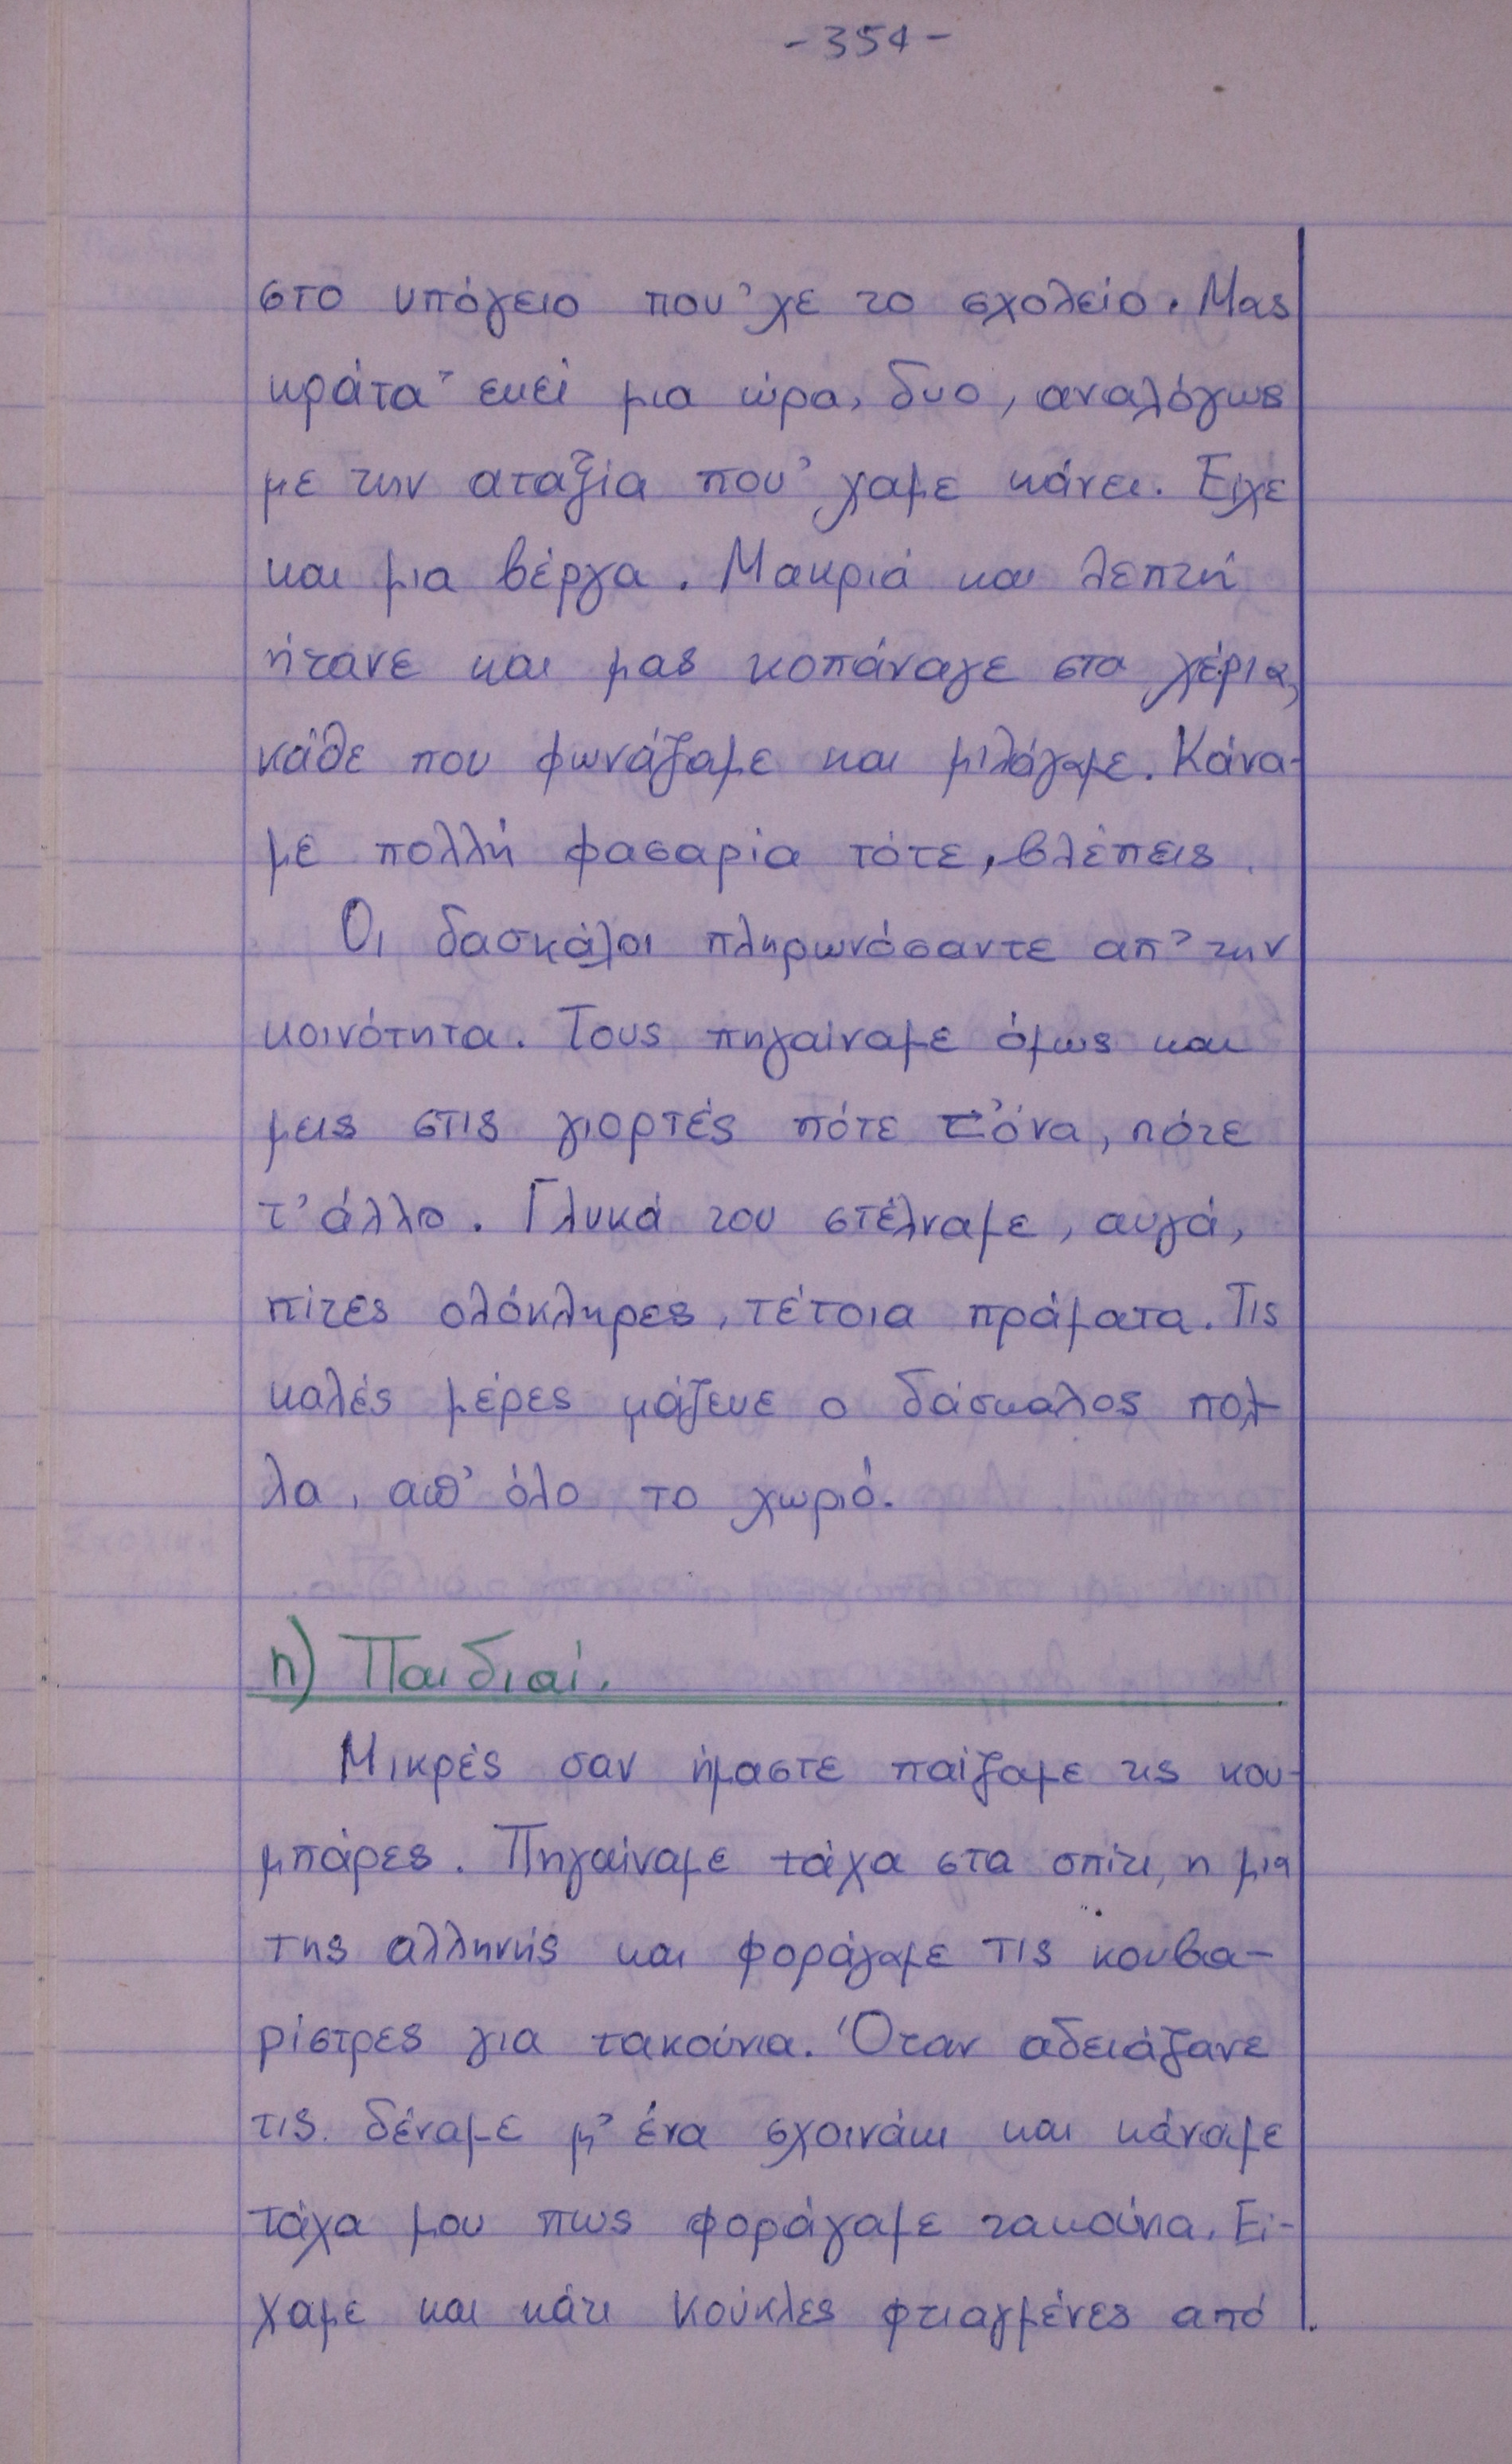 -354-
στο υπόγειο που 'χε το σχολείο. Μας
κράτα' εκεί μια ώρα, δυο, αναλόγως
με την αταξία που' χαμε κάνει. Είχε
και μια βέργα. Μακριά και λεπτή
ήτανε και μας κοπάναγε στα χέρια,
κάθε που φωνάζαμε και μιλάγαμε. Κάνα-
με πολλή φασαρία τότε, βλέπεις.
Οι δασκάλοι πληρωνόσαντε απ' την
κοινότητα. Τους πηγαίναμε όμως και
μεις στις γιορτές πότε τ' όνα, πότε
τ' άλλο. Γλυκά του στέλναμε, αυγά,
πίτες ολόκληρες, τέτοια πράματα. Τις
καλές μέρες μάζευε ο δάσκαλος πολ-
λα, απ' όλο το χωριό.
η) Παιδιαί.
Μικρές σαν ήμαστε παίζαμε τις κου-
μπάρες. Πηγαίναμε τάχα στα σπίτι, η μια
της αλληνής και φοράγαμε τις κουβα-
ρίστρες για τακούνια. Όταν αδειάζανε
τις δέναμε μ' ένα σχοινάκι και κάναμε
τάχα μου πως φοράγαμε τακούνια. Εί-
χαμε και κάτι κούκλες φτιαγμένες από